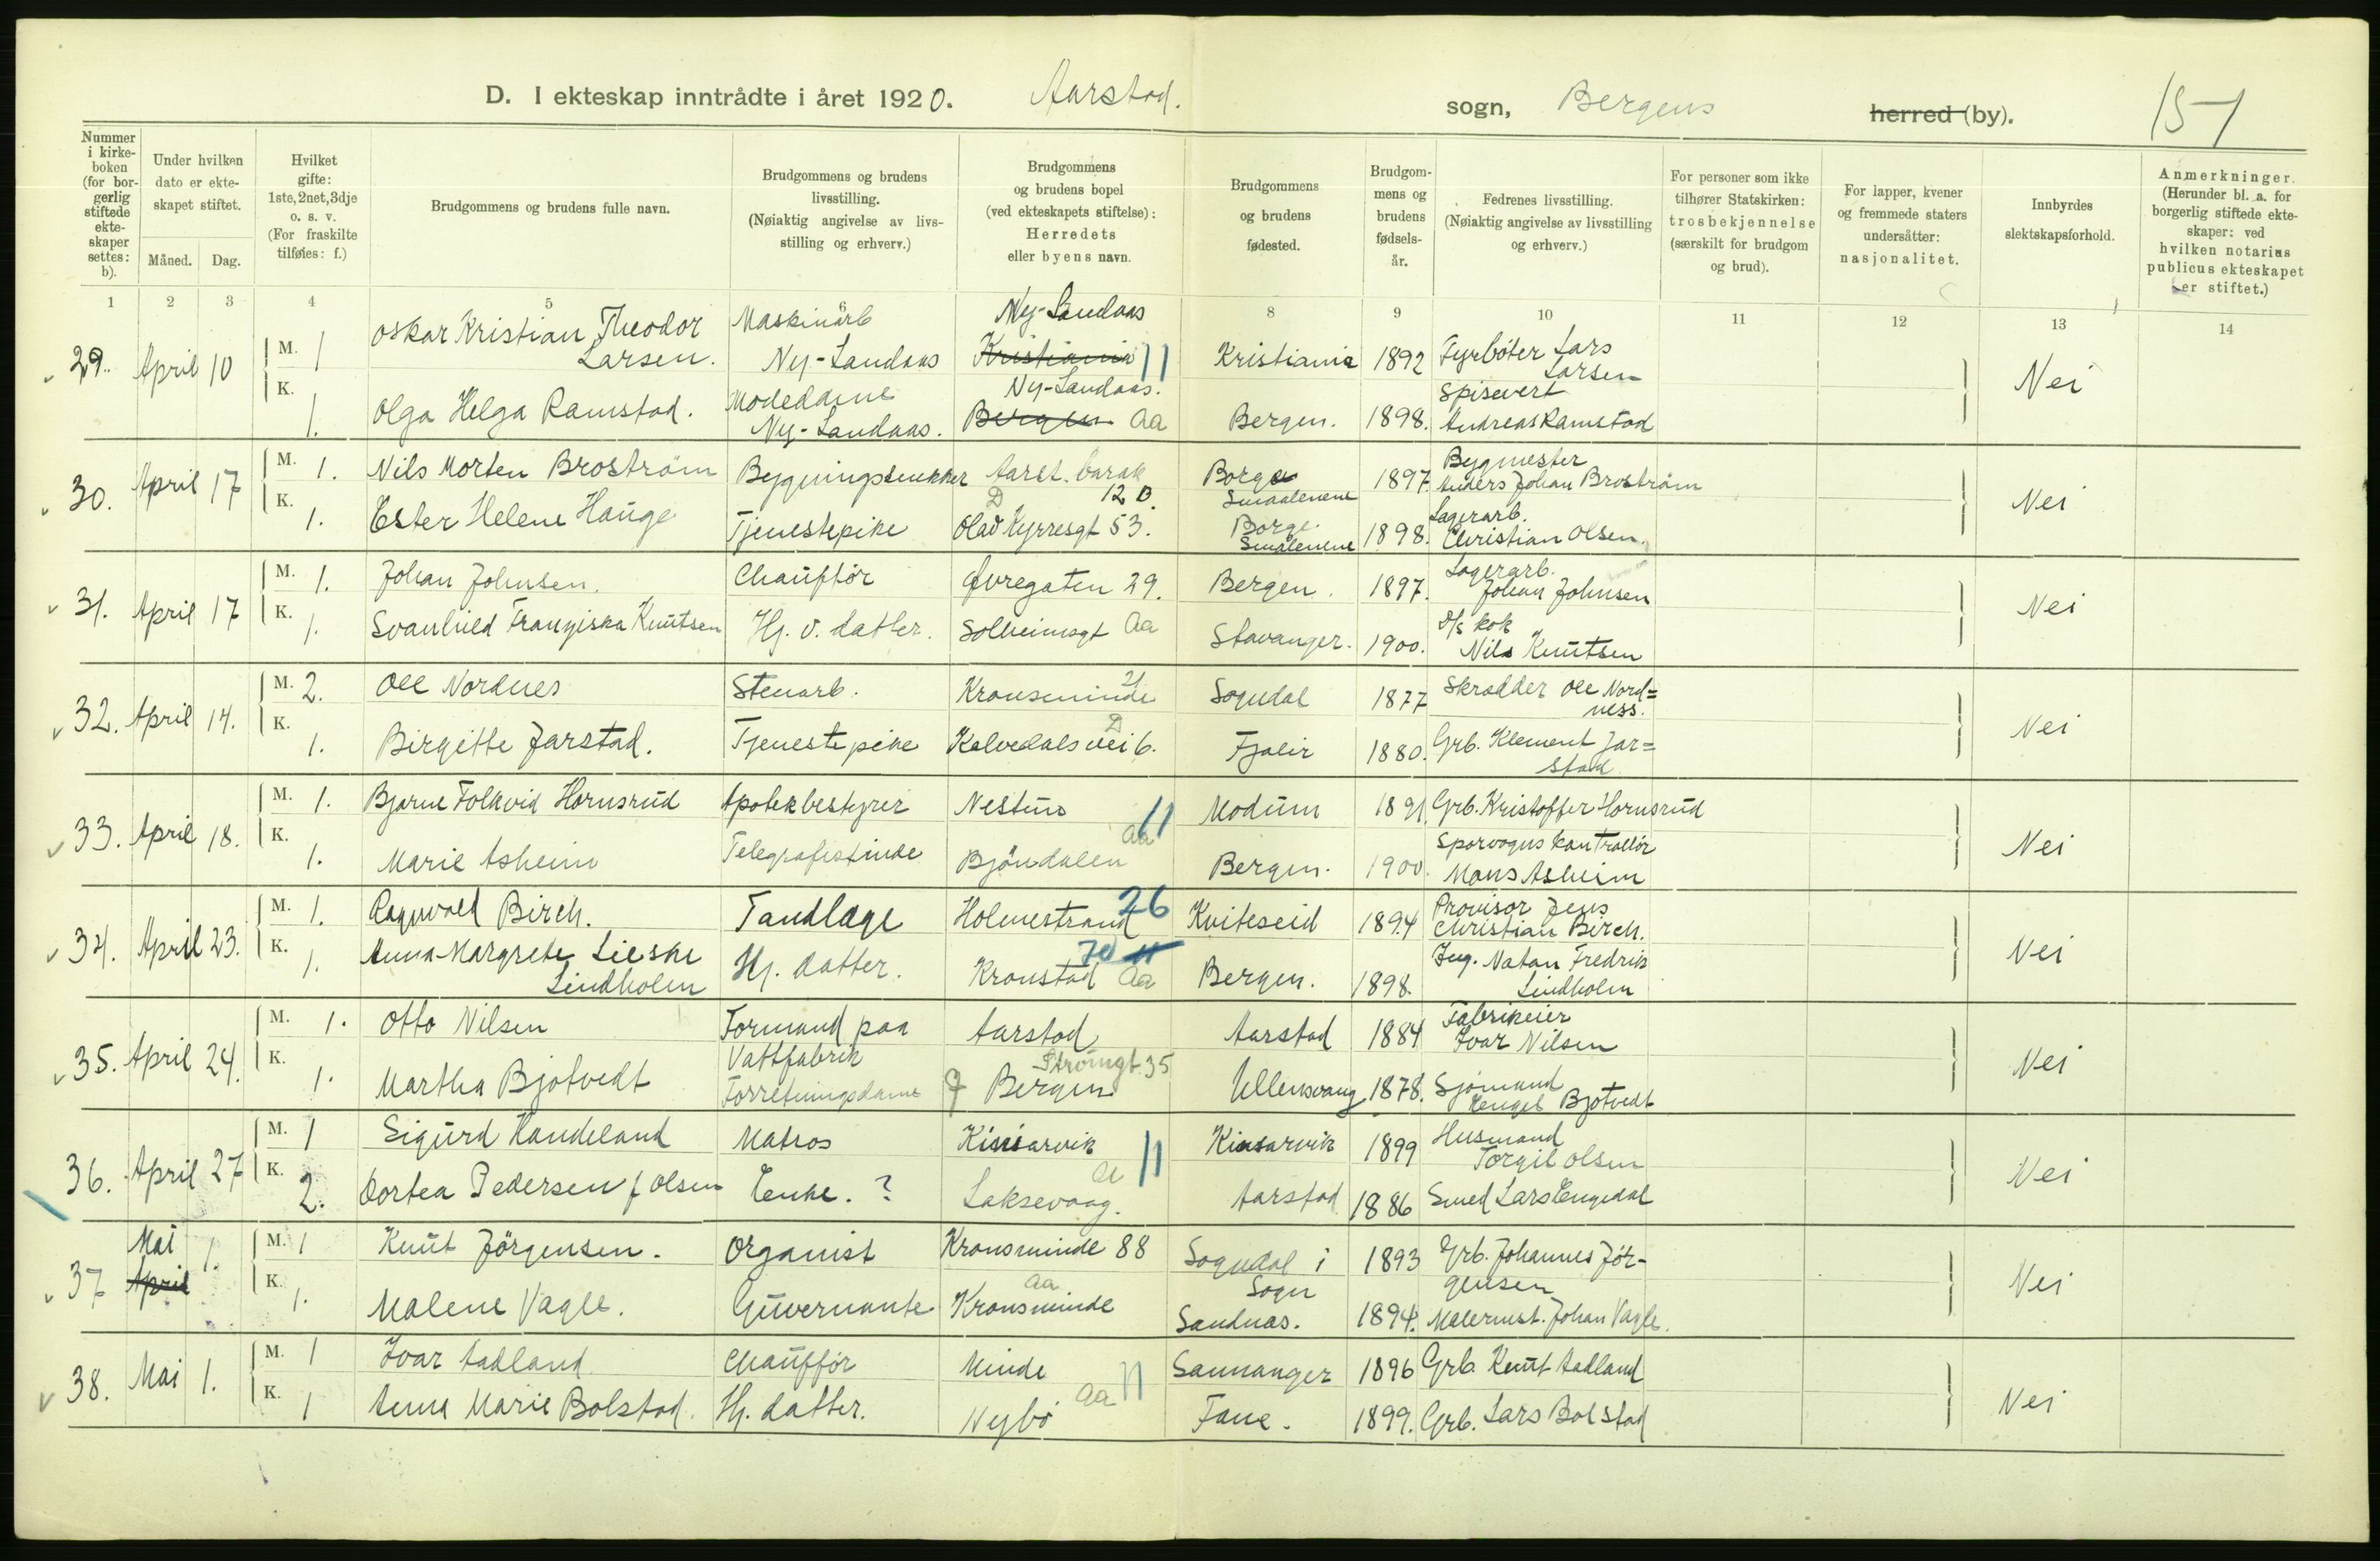 D. I ekteskap inntrådte i året 1920. Aarstad. sogn, Bergens herred (by). 151
Nummer i kirkeboken (for borgerlig stiftede ekteskaper settes: b).
Under hvilken dato er ekteskapet stiftet.
Måned. Dag.
Hvilket gifte: 1ste, 2net, 3dje o. s. v. (For fraskilte tilføies: f.)
Brudgommens og brudens fulle navn.
Brudgommens og brudens livsstilling. (Nøiaktig angivelse av livsstilling og erhverv.)
Brudgommens og brudens bopel (ved ekteskapets stiftelse): Herredets eller byens navn.
Brudgommens og brudens fødested.
Brudgommens og brudens fødselsår.
Fedrenes livsstilling. (Nøiaktig angivelse av livsstilling og erhverv.)
For personer som ikke tilhører Statskirken: trosbekjennelse (særskilt for brudgom og brud).
For lapper, kvener og fremmede staters undersåtter: nasjonalitet.
Innbyrdes slektskapsforhold.
Anmerkninger. (Herunder bl. a. for borgerlig stiftede ekteskaper: ved hvilken notarius publicus ekteskapet er stiftet.)
1 2 3 4 5 6 8 9 10 11 12 13 14
29. April 10 M. 1 Oskar Kristian Theodor Larsen. Maskinarb Ny-Landaas Ny-Landaas Kristiania 11 Kristiania 1892 Fyrbøter Lars Larsen Nei
K. 1. Olga Helga Ramstad. Modedame Ny-Landaas. Ny-Landaas. Bergen Aa Bergen. 1898. Spisevert Andreas Ramstad
30. April 17 M. 1. Nils Morten Broström Bygningssnekker Aarst. barak 12 D. Borge Smaalenene 1897. Bygmester Anders Johan Broström Nei
K. 1. Ester Helene Hauge Tjenestepike D Olav Kyrresgt 53. Borge Smålenene 1898. Lagerarb. Christian Olsen.
31. April 17 M. 1. Johan Johnsen. Chauffør Øvregaten 29. Bergen. 1897. Lagerarb. Johan Johnsen Nei
K. 1. Svanhild Franziska Knutsen Hj. v. datter. Solheimsgt Aa Stavanger. 1900. D/s kok Nils Knutsen
32. April 14. M. 2. Ole Nordnes Stenarb. Kronsminde 21 Sogndal 1877 Skrædder Ole Nord=ness. Nei
K. 1. Birgitte Jarstad. Tjenestepike Kalvedalsvei 6. D Fjaler 1880. Grb. Klement Jar=stad
33. April 18. M. 1. Bjarne Folkvid Hornsrud Apotekbestyrer Nestun 11 Modum 1891. Grb. Kristoffer Hornsrud Nei
K. 1. Marie Asheim Telegrafistinde Bjöndalen Aa Bergen. 1900. Sporvogns kontrollör Mons Asheim
34. April 23. M. 1. Ragnvald Birch. Tandlæge Holmestrand 26 Kviteseid 1894 Provisor Jens Christian Birch. Nei
K. 1. Anna Margrete Lieske Lindholm Hj. datter. 70 11 Kronstad Aa Bergen. 1898. Ing. Natan Fredrik Lindholm
35. April 24. M. 1. Otto Nilsen Formand paa Vattfabrik Aarstad Aarstad 1884 Fabrikeier Ivar Nilsen Nei
K. 1. Martha Bjotvedt Forretningsdame Strömgt. 35 Bergen Ullensvang 1878. Sjömand Bjotvedt
36. April 27 M. 1 Sigurd Handeland Matros Kinsarvik Kinsarvik 1899 Husmand Torgil Olsen Nei
K. 2. Dortea Pedersen f Olsen Enke. ? Laksevaag. 11 Aarstad 1886 Smed Lars Engedal
37 Mai April 1. M. 1 Knut Jörgensen. Organist Kronsminde 88 Sogndal i Sogn 1893 Grb. Johannes Jör-gensen Nei
K. 1. Malene Vagle. Guvernante Aa Kronsminde Sandnæs. 1894. Malermst. Johan Vagle.
38. Mai 1. M. 1 Ivar Aadland Chauffør Minde Samnanger 1896 Grb. Knut Aadland Nei
K. 1 Anna Marie Bolstad. Hj. datter. Nybö Aa 11 Fane. 1899. Grb. Lars Bolstad